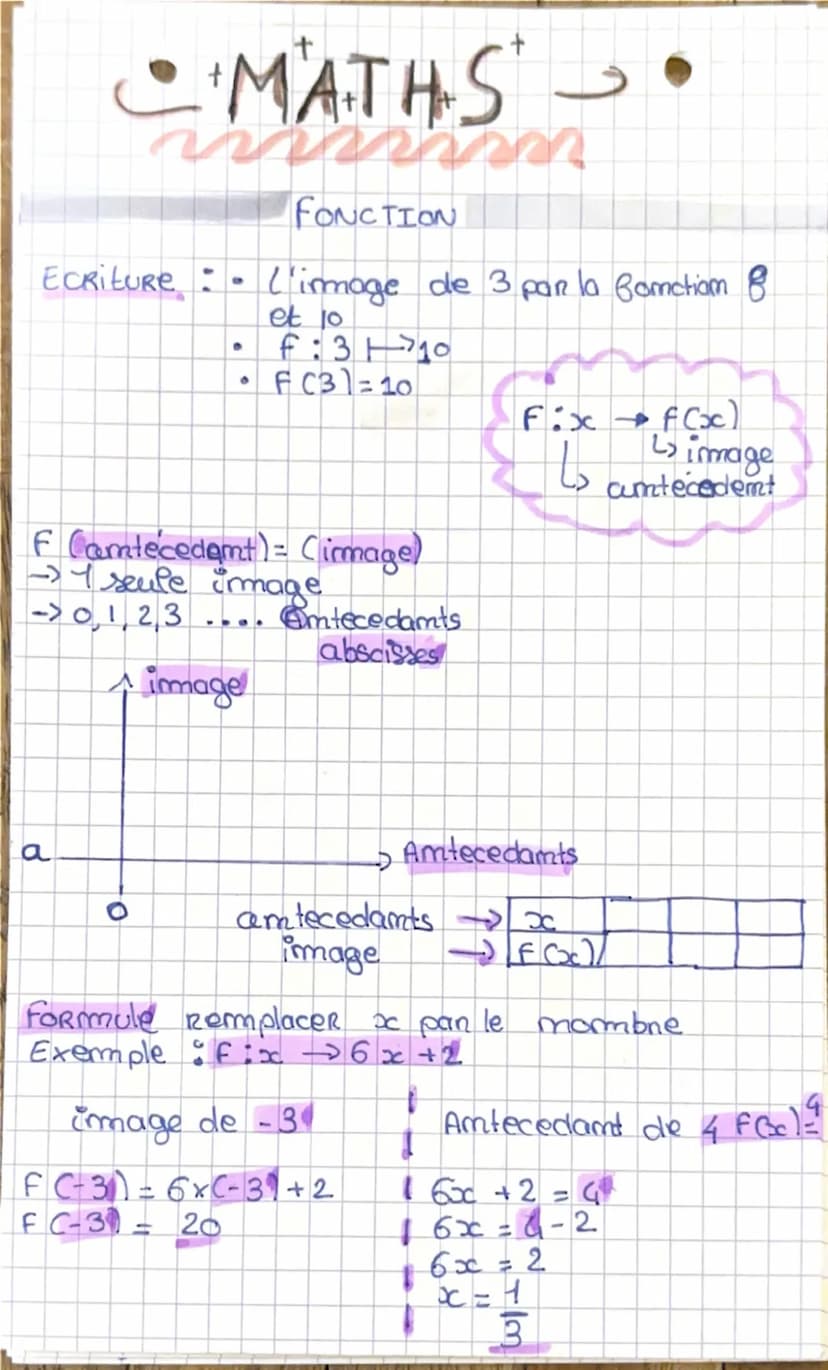 MATHS
FONCTION
ECRITURE : • L'image de 3 par la fonction f
et 10
• f : 3 ↦ 10
• F(3) = 10
F : x → f(x)
↳ image
↳ antécédent
F (antécédent) = (image)
→ 1 seule image
→ 0, 1, 2, 3 .... Antecedants
abscisses
image
a
Antecedants
0
antecedants → x
image → F(x)
FORMULE REMPLACER x par le nombre
Exemple : F : x → 6x + 2
image de -3
F(-3) = 6x(-3) + 2
F(-3) = 20
Antecedant de 4 F(x) = 4
6x + 2 = 4
6x = 4 - 2
6x = 2
x = 1
3